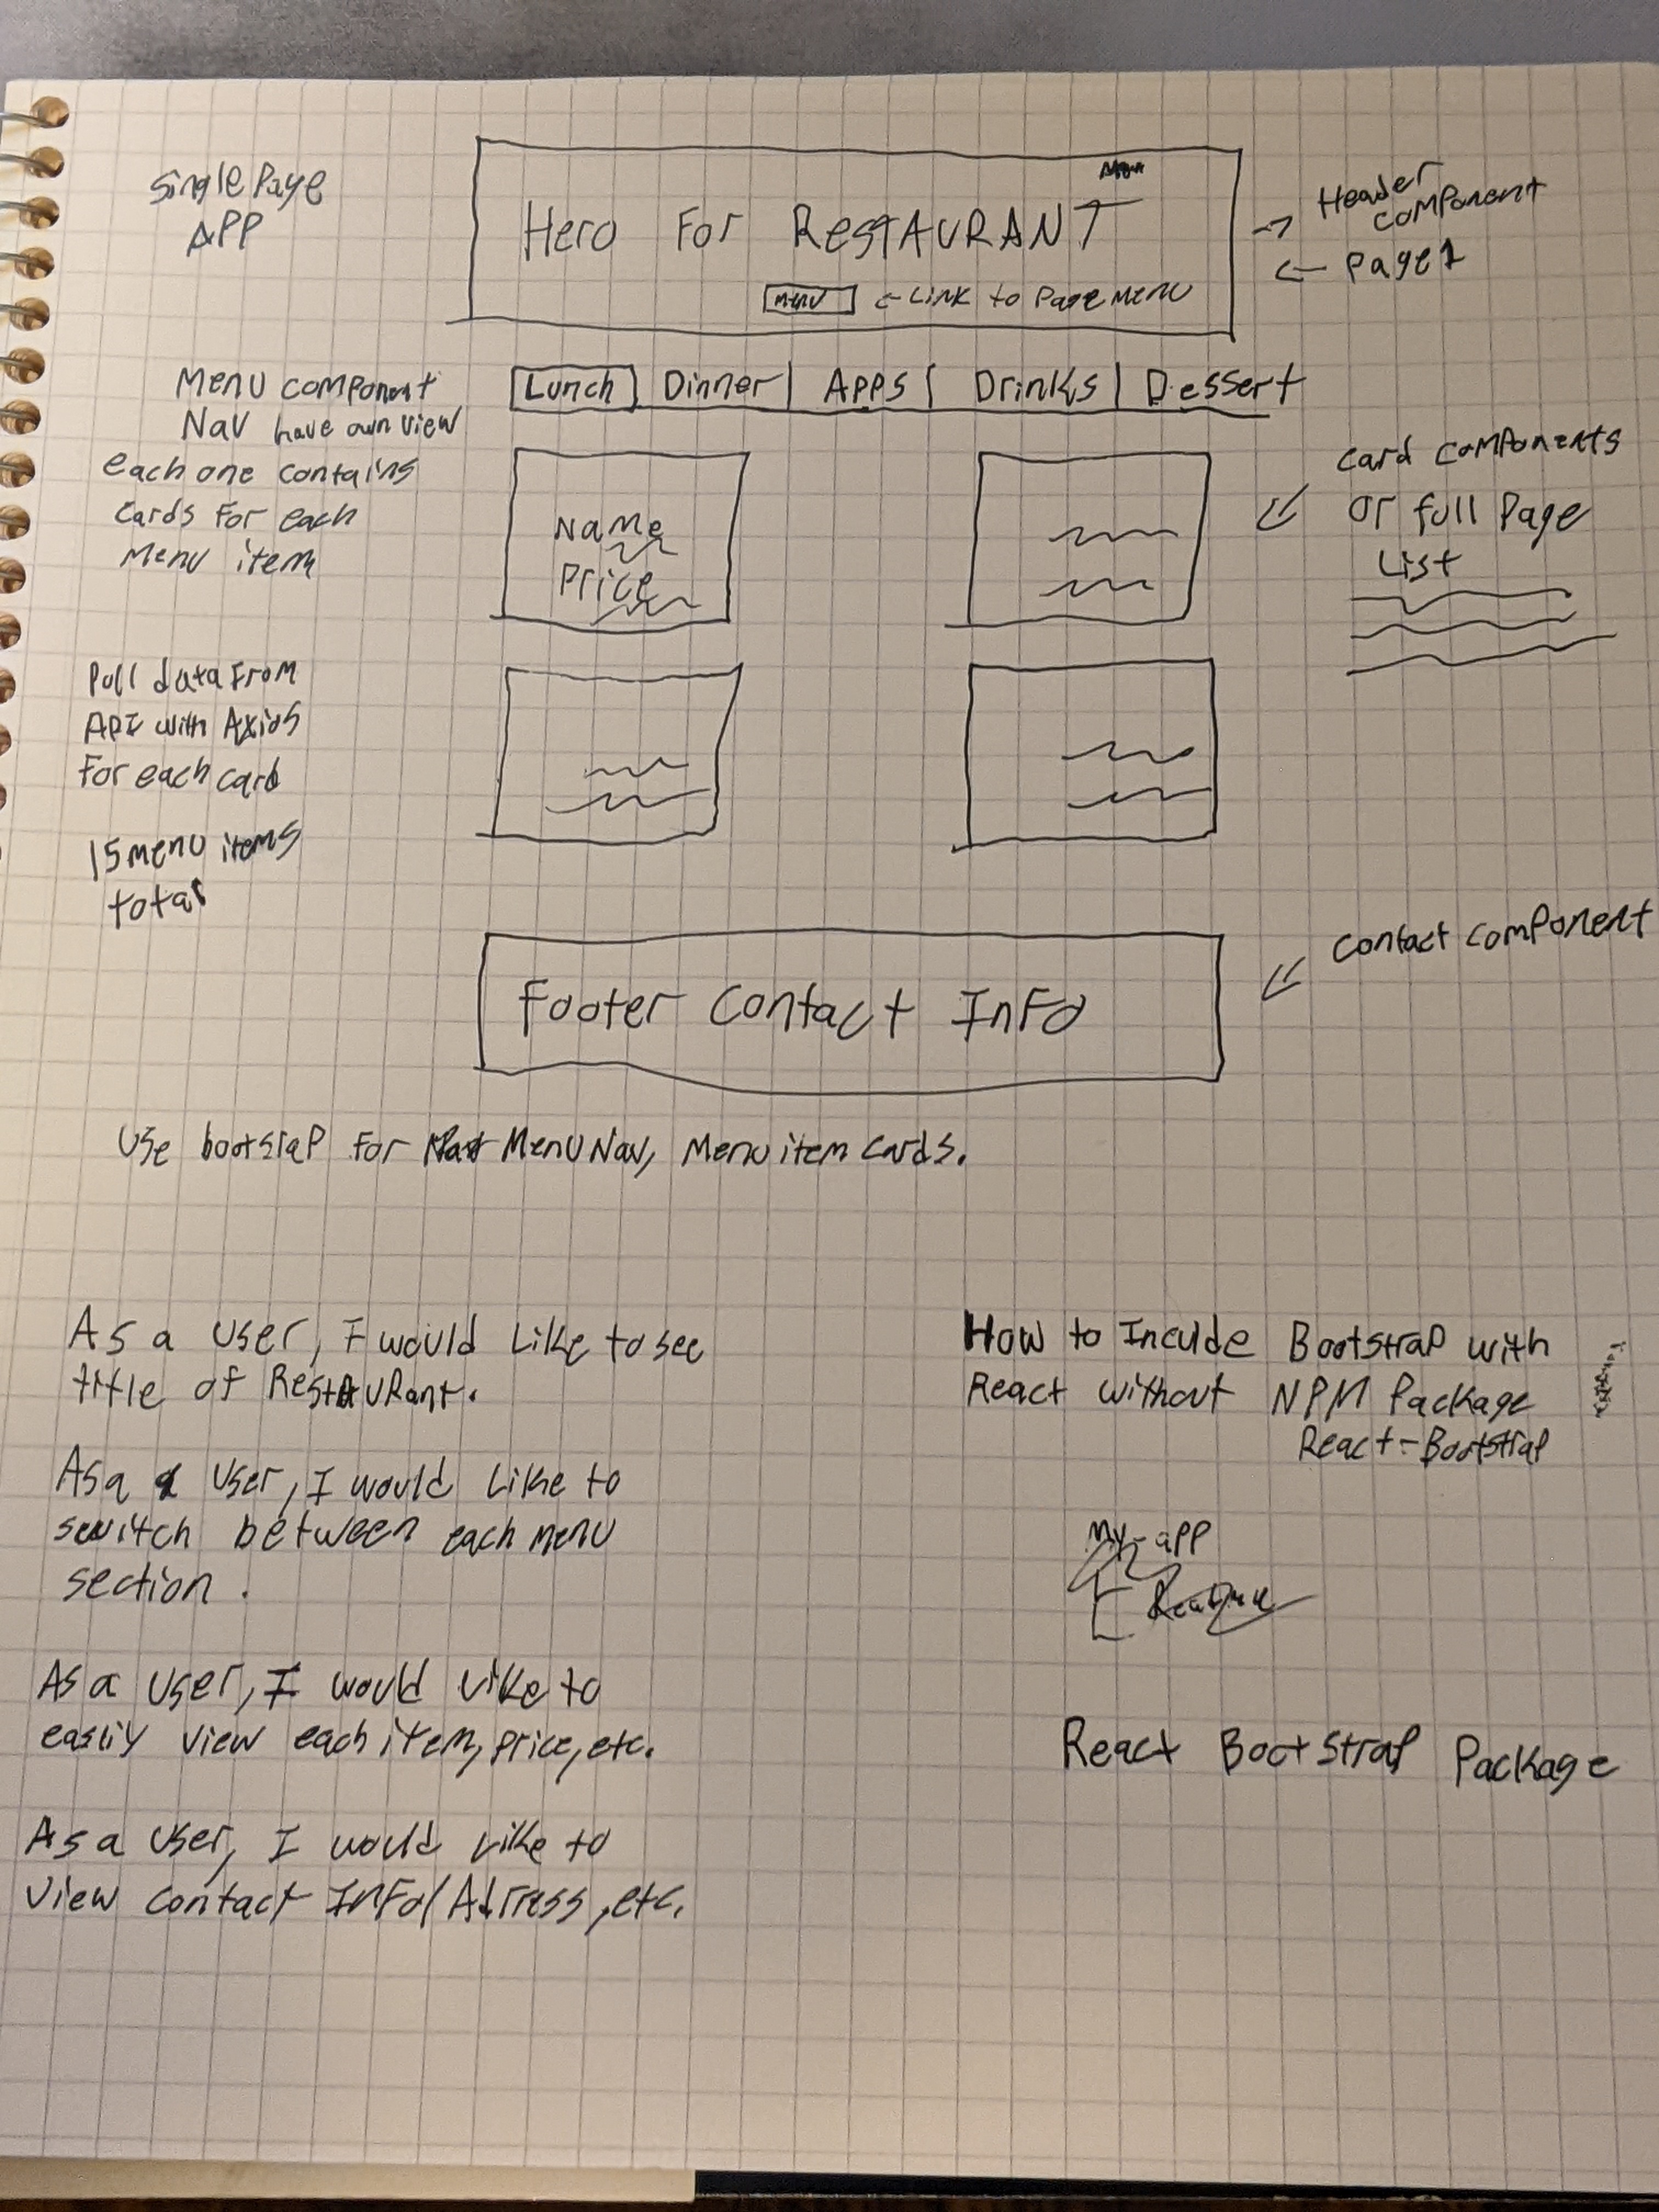 Single Page
APP
Hero For RestAURANT
menu ← Link to Page Menu
→ Header
component
← Page 1
Menu component
Nav have own view
each one contains
cards for each
menu item
Lunch | Dinner | Apps | Drinks | Dessert
Name
Price
card components
or full Page
List
Pull data from
API with Axios
For each card
15 menu items
total
Footer Contact Info
contact component
Use bootsrap for Menu Nav, Menu item cards.
As a user, I would like to see
title of RestAURant.
As a user, I would like to
switch between each menu
section.
As a user, I would like to
easily view each item, price, etc.
As a user, I would like to
view contact Info/Adress, etc.
How to Inculde Bootstrap with
React without NPM Package
React-Bootstrap
My-app
React Bootstrap Package